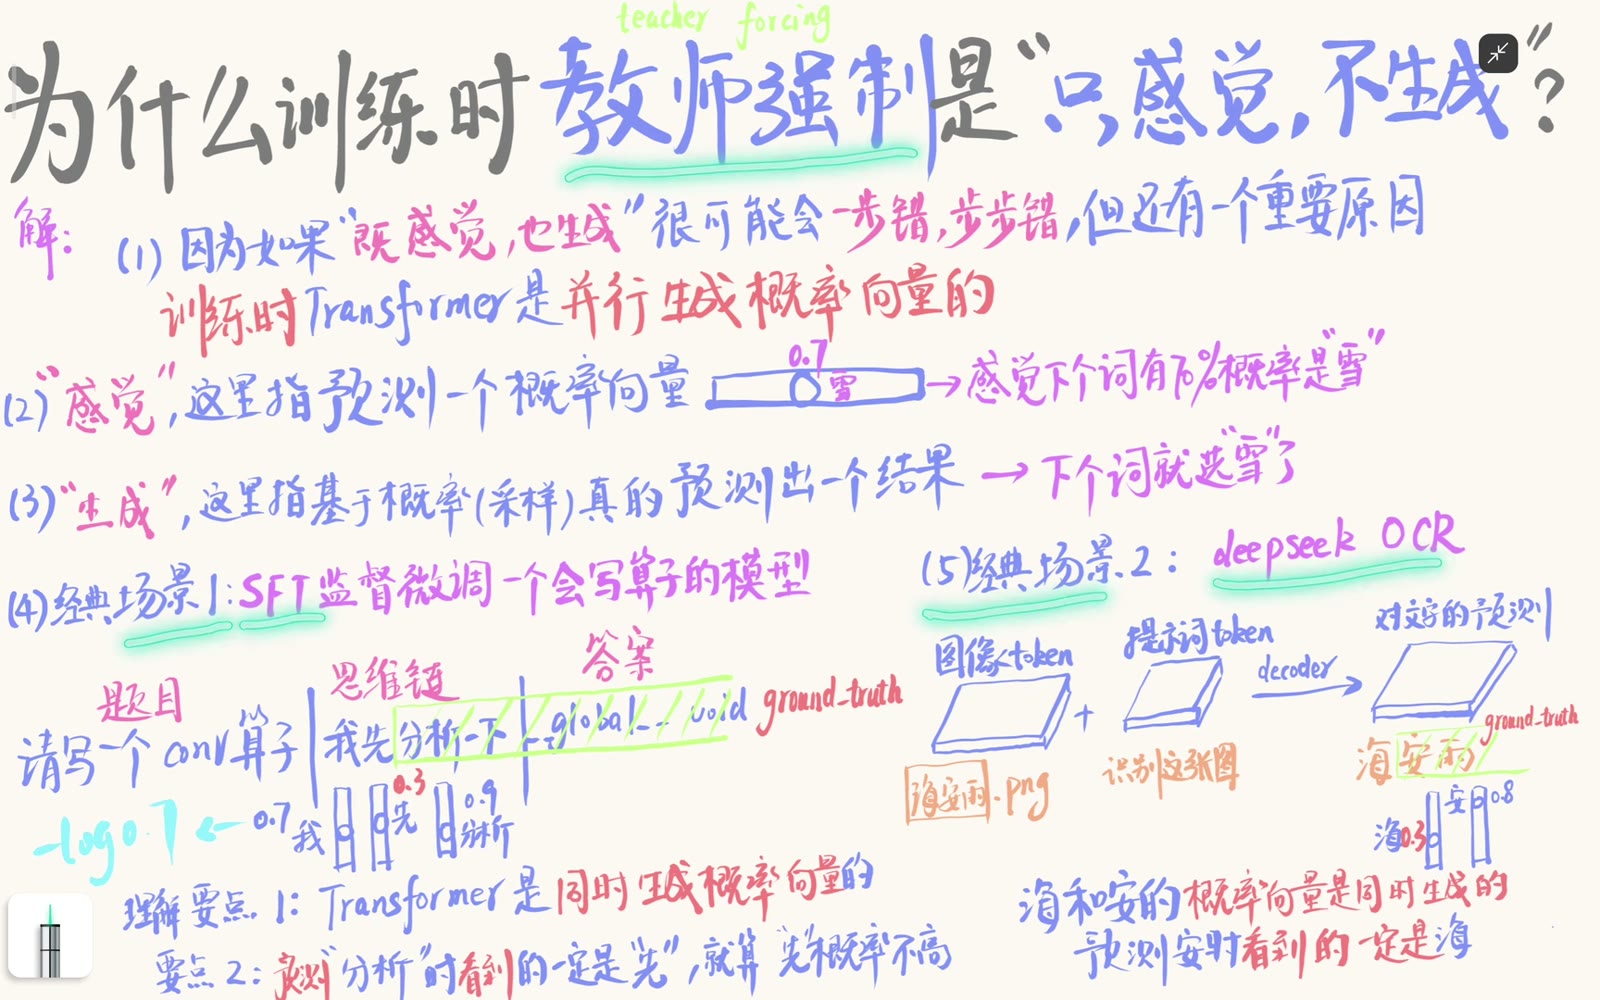 teacher forcing
为什么训练时教师强制是“只感觉，不生成”？
解：(1) 因为如果“既感觉，也生成”很可能会一步错，步步错，但还有一个重要原因
训练时Transformer是并行生成概率向量的
0.7
(2)“感觉”，这里指预测一个概率向量 雪 → 感觉下个词有70%概率是“雪”
(3)“生成”，这里指基于概率(采样)真的预测出一个结果 → 下个词就选“雪”了
(4)经典场景1：SFT监督微调一个会写算子的模型
题目 思维链 答案
请写一个conv算子 | 我先分析一下 | __global__ void ground_truth
-log0.7 ← 0.7 我 0.3 先 0.9 分析
理解要点1：Transformer是同时生成概率向量的
要点2：预测“分析”时看到的一定是“先”，就算“先”概率不高
(5)经典场景2： deepseek OCR
图像token + 提示词token decoder → 对文字的预测
海安雨.png 识别这张图 海安雨 ground_truth
海 0.3 安 0.8
海和安的概率向量是同时生成的
预测安时看到的一定是海